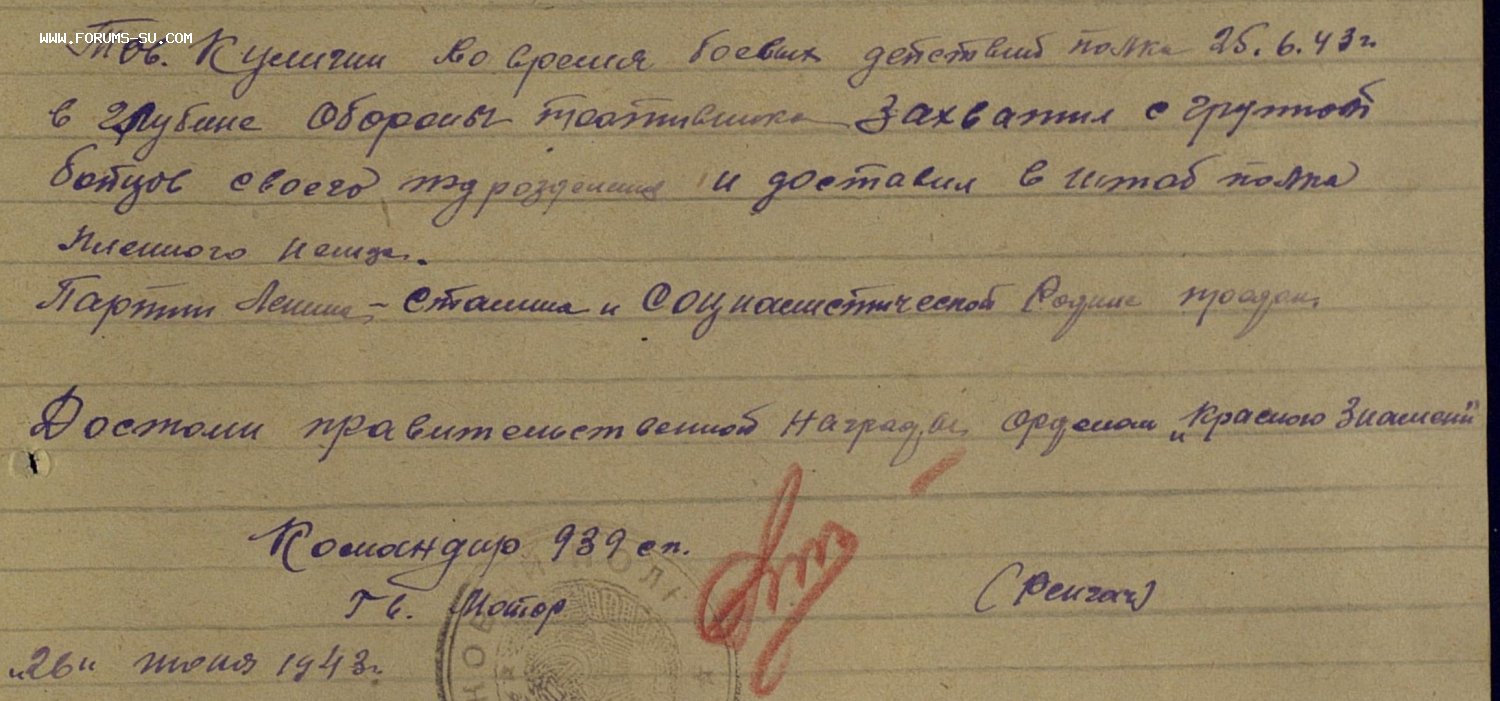 WWW.FORUMS-SU.COM
Тов. Куличин во время боевых действий полка 25.6.43г.
в глубине обороны противника захватил с группой
бойцов своего подразделения и доставил в штаб полка
пленного немца.
Партии Ленина-Сталина и Социалистической Родине предан.
Достоин правительственной награды, орденом „Красного Знамени"
Командир 939 сп.
Гв. Майор
„26" июня 1943г.